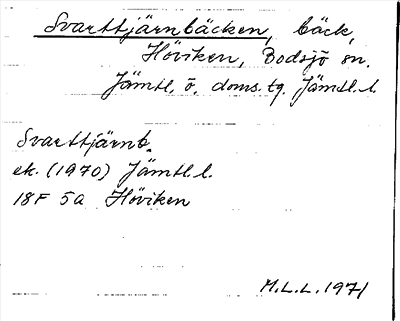 Svarttjärnbäcken, bäck,
Höviken, Bodsjö sn.
Jämtl. ö. doms.tg. Jämtl. l.
Svarttjärnb.
ek. (1970) Jämtl. l.
18F 5a Höviken
M.L.L. 1971